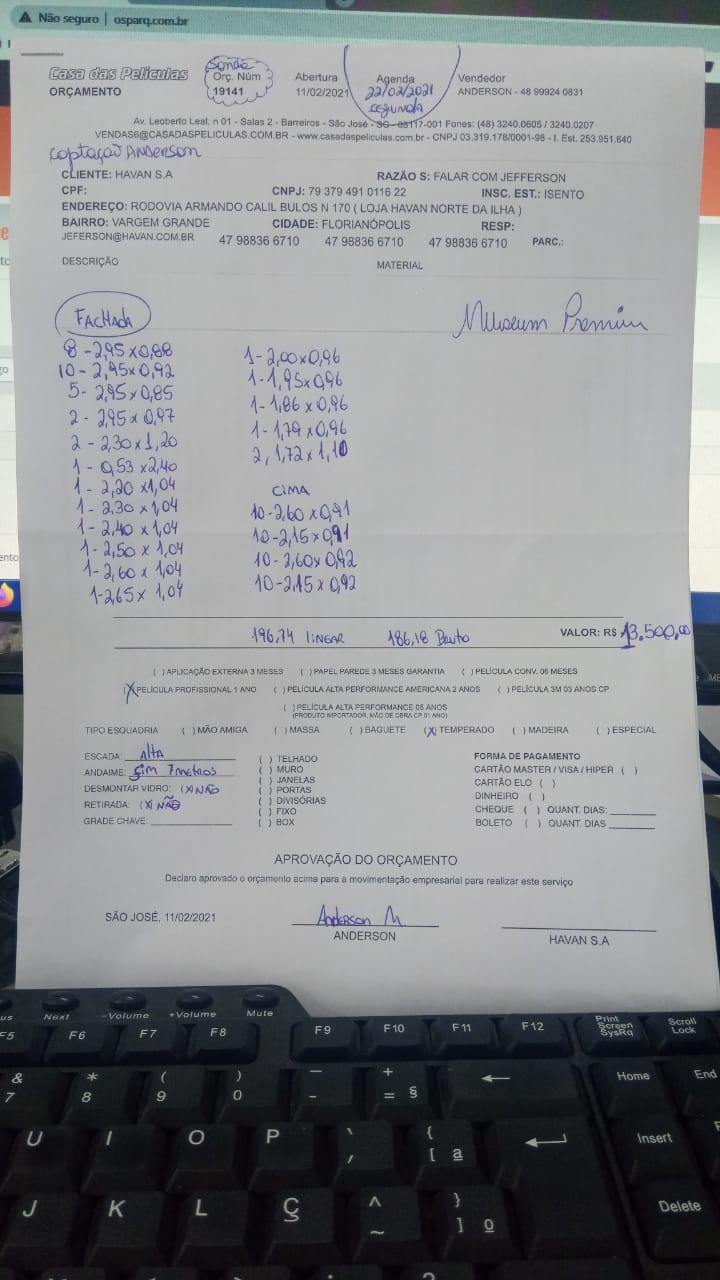 Não seguro | osparq.com.br
Casa das Películas
ORÇAMENTO
Orç. Núm
19141
Abertura
11/02/2021
Agenda
22/02/2021
segunda
Vendedor
ANDERSON - 48 99924 0831
Av. Leoberto Leal, n 01 - Salas 2 - Barreiros - São José - SC - 88117-001 Fones: (48) 3240.0605 / 3240.0207
VENDAS6@CASADASPELICULAS.COM.BR - www.casadaspeliculas.com.br - CNPJ 03.319.178/0001-98 - I. Est. 253.951.640
captação ANderson
CLIENTE: HAVAN S.A
RAZÃO S: FALAR COM JEFFERSON
CPF:
CNPJ: 79 379 491 0116 22
INSC. EST.: ISENTO
ENDEREÇO: RODOVIA ARMANDO CALIL BULOS N 170 ( LOJA HAVAN NORTE DA ILHA )
BAIRRO: VARGEM GRANDE
CIDADE: FLORIANÓPOLIS
RESP:
JEFERSON@HAVAN.COM.BR
47 98836 6710 47 98836 6710 47 98836 6710
PARC.:
DESCRIÇÃO
MATERIAL
FACHADA
Museum Premium
8 - 2,95 x 0,88
10 - 2,95 x 0,92
5 - 2,95 x 0,85
2 - 2,95 x 0,97
2 - 2,30 x 1,20
1 - 0,53 x 2,40
1 - 2,20 x 1,04
1 - 2,30 x 1,04
1 - 2,40 x 1,04
1 - 2,50 x 1,04
1 - 2,60 x 1,04
1 - 2,65 x 1,04
1 - 2,00 x 0,96
1 - 1,95 x 0,96
1 - 1,86 x 0,96
1 - 1,79 x 0,96
2, 1,72 x 1,10
CIMA
10 - 2,60 x 0,91
10 - 2,15 x 0,91
10 - 2,60 x 0,92
10 - 2,15 x 0,92
196,74 linear 186,18 Bruto
VALOR: R$ 13.500,00
( ) APLICAÇÃO EXTERNA 3 MESES ( ) PAPEL PAREDE 3 MESES GARANTIA ( ) PELÍCULA CONV. 06 MESES
(X) PELÍCULA PROFISSIONAL 1 ANO ( ) PELÍCULA ALTA PERFORMANCE AMERICANA 2 ANOS ( ) PELÍCULA 3M 03 ANOS CP
( ) PELÍCULA ALTA PERFORMANCE 05 ANOS
(PRODUTO IMPORTADOR, MÃO DE OBRA CP 01 ANO)
TIPO ESQUADRIA ( ) MÃO AMIGA ( ) MASSA ( ) BAGUETE (X) TEMPERADO ( ) MADEIRA ( ) ESPECIAL
ESCADA: Alta
ANDAIME: Sim 7 metros
DESMONTAR VIDRO: (X) NÃO
RETIRADA: (X) NÃO
GRADE CHAVE:
( ) TELHADO
( ) MURO
( ) JANELAS
( ) PORTAS
( ) DIVISÓRIAS
( ) FIXO
( ) BOX
FORMA DE PAGAMENTO
CARTÃO MASTER / VISA / HIPER ( )
CARTÃO ELO ( )
DINHEIRO ( )
CHEQUE ( ) QUANT. DIAS:
BOLETO ( ) QUANT. DIAS
APROVAÇÃO DO ORÇAMENTO
Declaro aprovado o orçamento acima para a movimentação empresarial para realizar este serviço
SÃO JOSÉ, 11/02/2021
Anderson M
ANDERSON
HAVAN S.A
Next -Volume +Volume Mute
F5 F6 F7 F8 F9 F10 F11 F12
Print Screen SysRq
Scroll Lock
& 7 * 8 ( 9 ) 0 _ - + = §
Home End
U I O P ` ´ { [ ª
Insert
J K L Ç ^ ~ } ] º
Delete